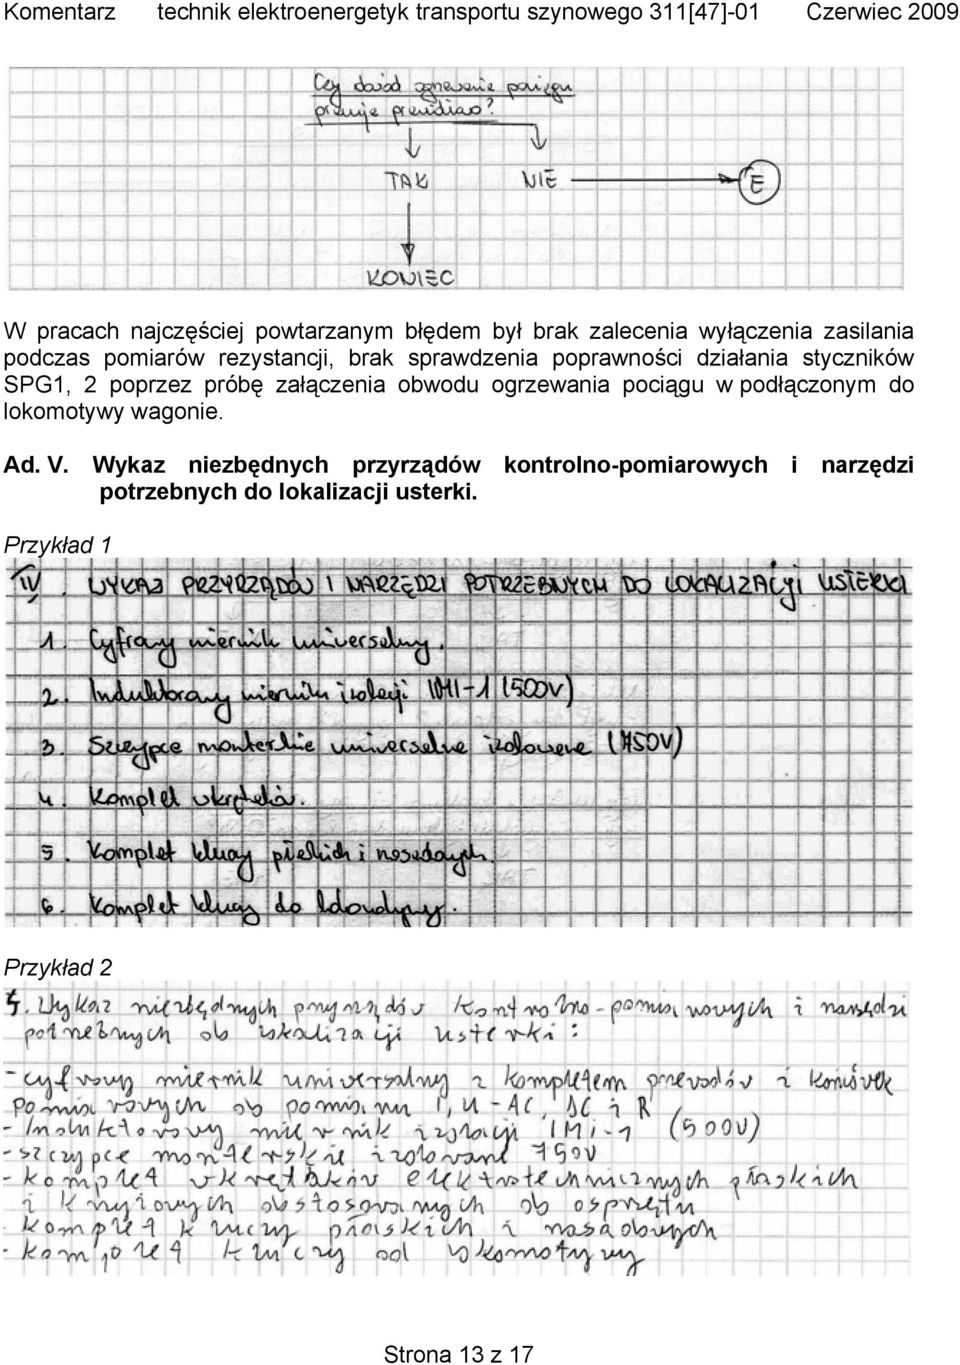 Komentarz technik elektroenergetyk transportu szynowego 311[47]-01 Czerwiec 2009
Czy obwód ogrzewania pociągu
pracuje prawidłowo?
TAK NIE E
KONIEC
W pracach najczęściej powtarzanym błędem był brak zalecenia wyłączenia zasilania
podczas pomiarów rezystancji, brak sprawdzenia poprawności działania styczników
SPG1, 2 poprzez próbę załączenia obwodu ogrzewania pociągu w podłączonym do
lokomotywy wagonie.
Ad. V. Wykaz niezbędnych przyrządów kontrolno-pomiarowych i narzędzi
potrzebnych do lokalizacji usterki.
Przykład 1
IV. WYKAZ PRZYRZĄDÓW I NARZĘDZI POTRZEBNYCH DO LOKALIZACJI USTERKI
1. Cyfrowy miernik uniwersalny.
2. Induktorowy miernik izolacji IMI-1 (500V)
3. Szczypce monterskie uniwersalne izolowane (750V)
4. Komplet wkrętaków.
5. Komplet kluczy płaskich i nasadowych.
6. Komplet kluczy do lokomotywy.
Przykład 2
5. Wykaz niezbędnych przyrządów kontrolno-pomiarowych i narzędzi
potrzebnych do lokalizacji usterki:
- cyfrowy miernik uniwersalny z kompletem przewodów i końcówek
pomiarowych do pomiaru I, U - AC, DC i R
- Induktorowy miernik izolacji IMi-1 (500V)
- szczypce monterskie izolowane 750V
- komplet wkrętaków elektrotechnicznych płaskich
i krzyżowych dostosowanych do osprzętu
- komplet kluczy płaskich i nasadowych
- komplet kluczy od lokomotywy
Strona 13 z 17